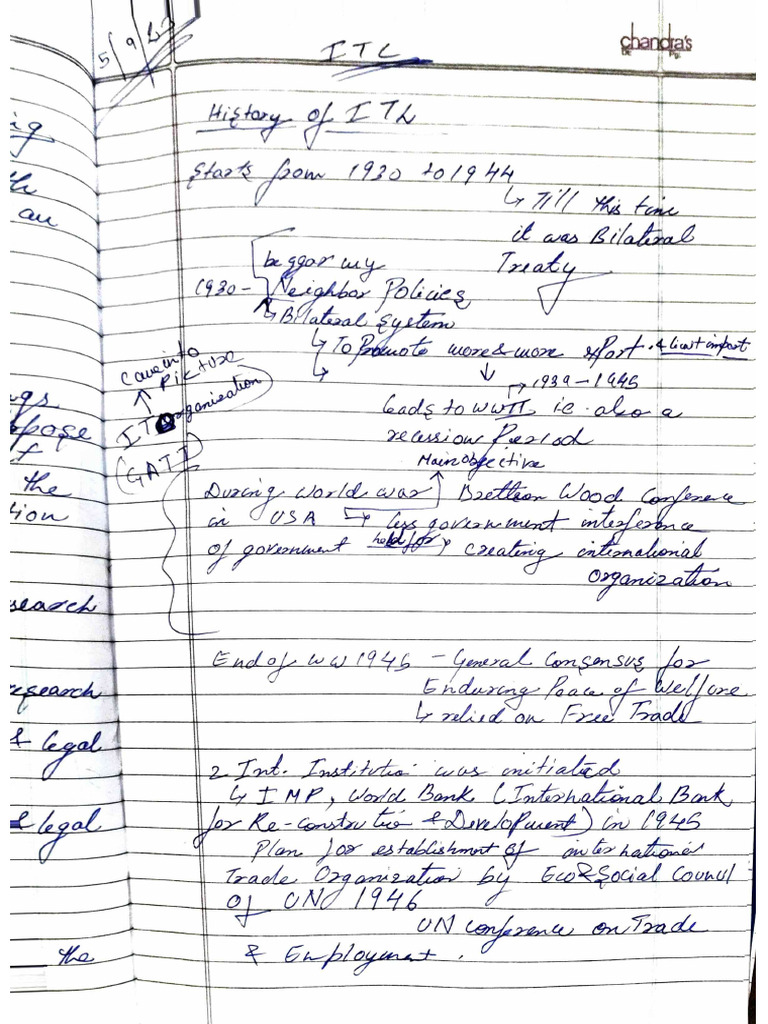 5/9/
ITL
chandra's
History of ITL
starts from 1930 to 1944
↳ Till this time
it was Bilateral
Treaty
beggar my
1930 - Neighbor Policies
↳ Bilateral system
↳ To Promote more & more export & least import
↳
→ 1939-1945
leads to WWII i.e. also a
recession Period
Came into
Picture
ITO organization
(GATT)
Main objective
During world war Bretton Wood Conference
in USA ↳ less government interference
of government held for ↳ creating international
organization
End of WW 1945 - General Consensus for
Enduring Peace of Welfare
↳ relied on Free Trade
2 Int. Institution was initiated
↳ IMP, World Bank (International Bank
for Re-construction & Development) in 1945
Plan for establishment of international
Trade Organization by Eco & Social Council
of UN 1946
UN conference on Trade
& Employment.
ing
th
au
ngs
of
the
tion
search
research
& legal
& legal
the